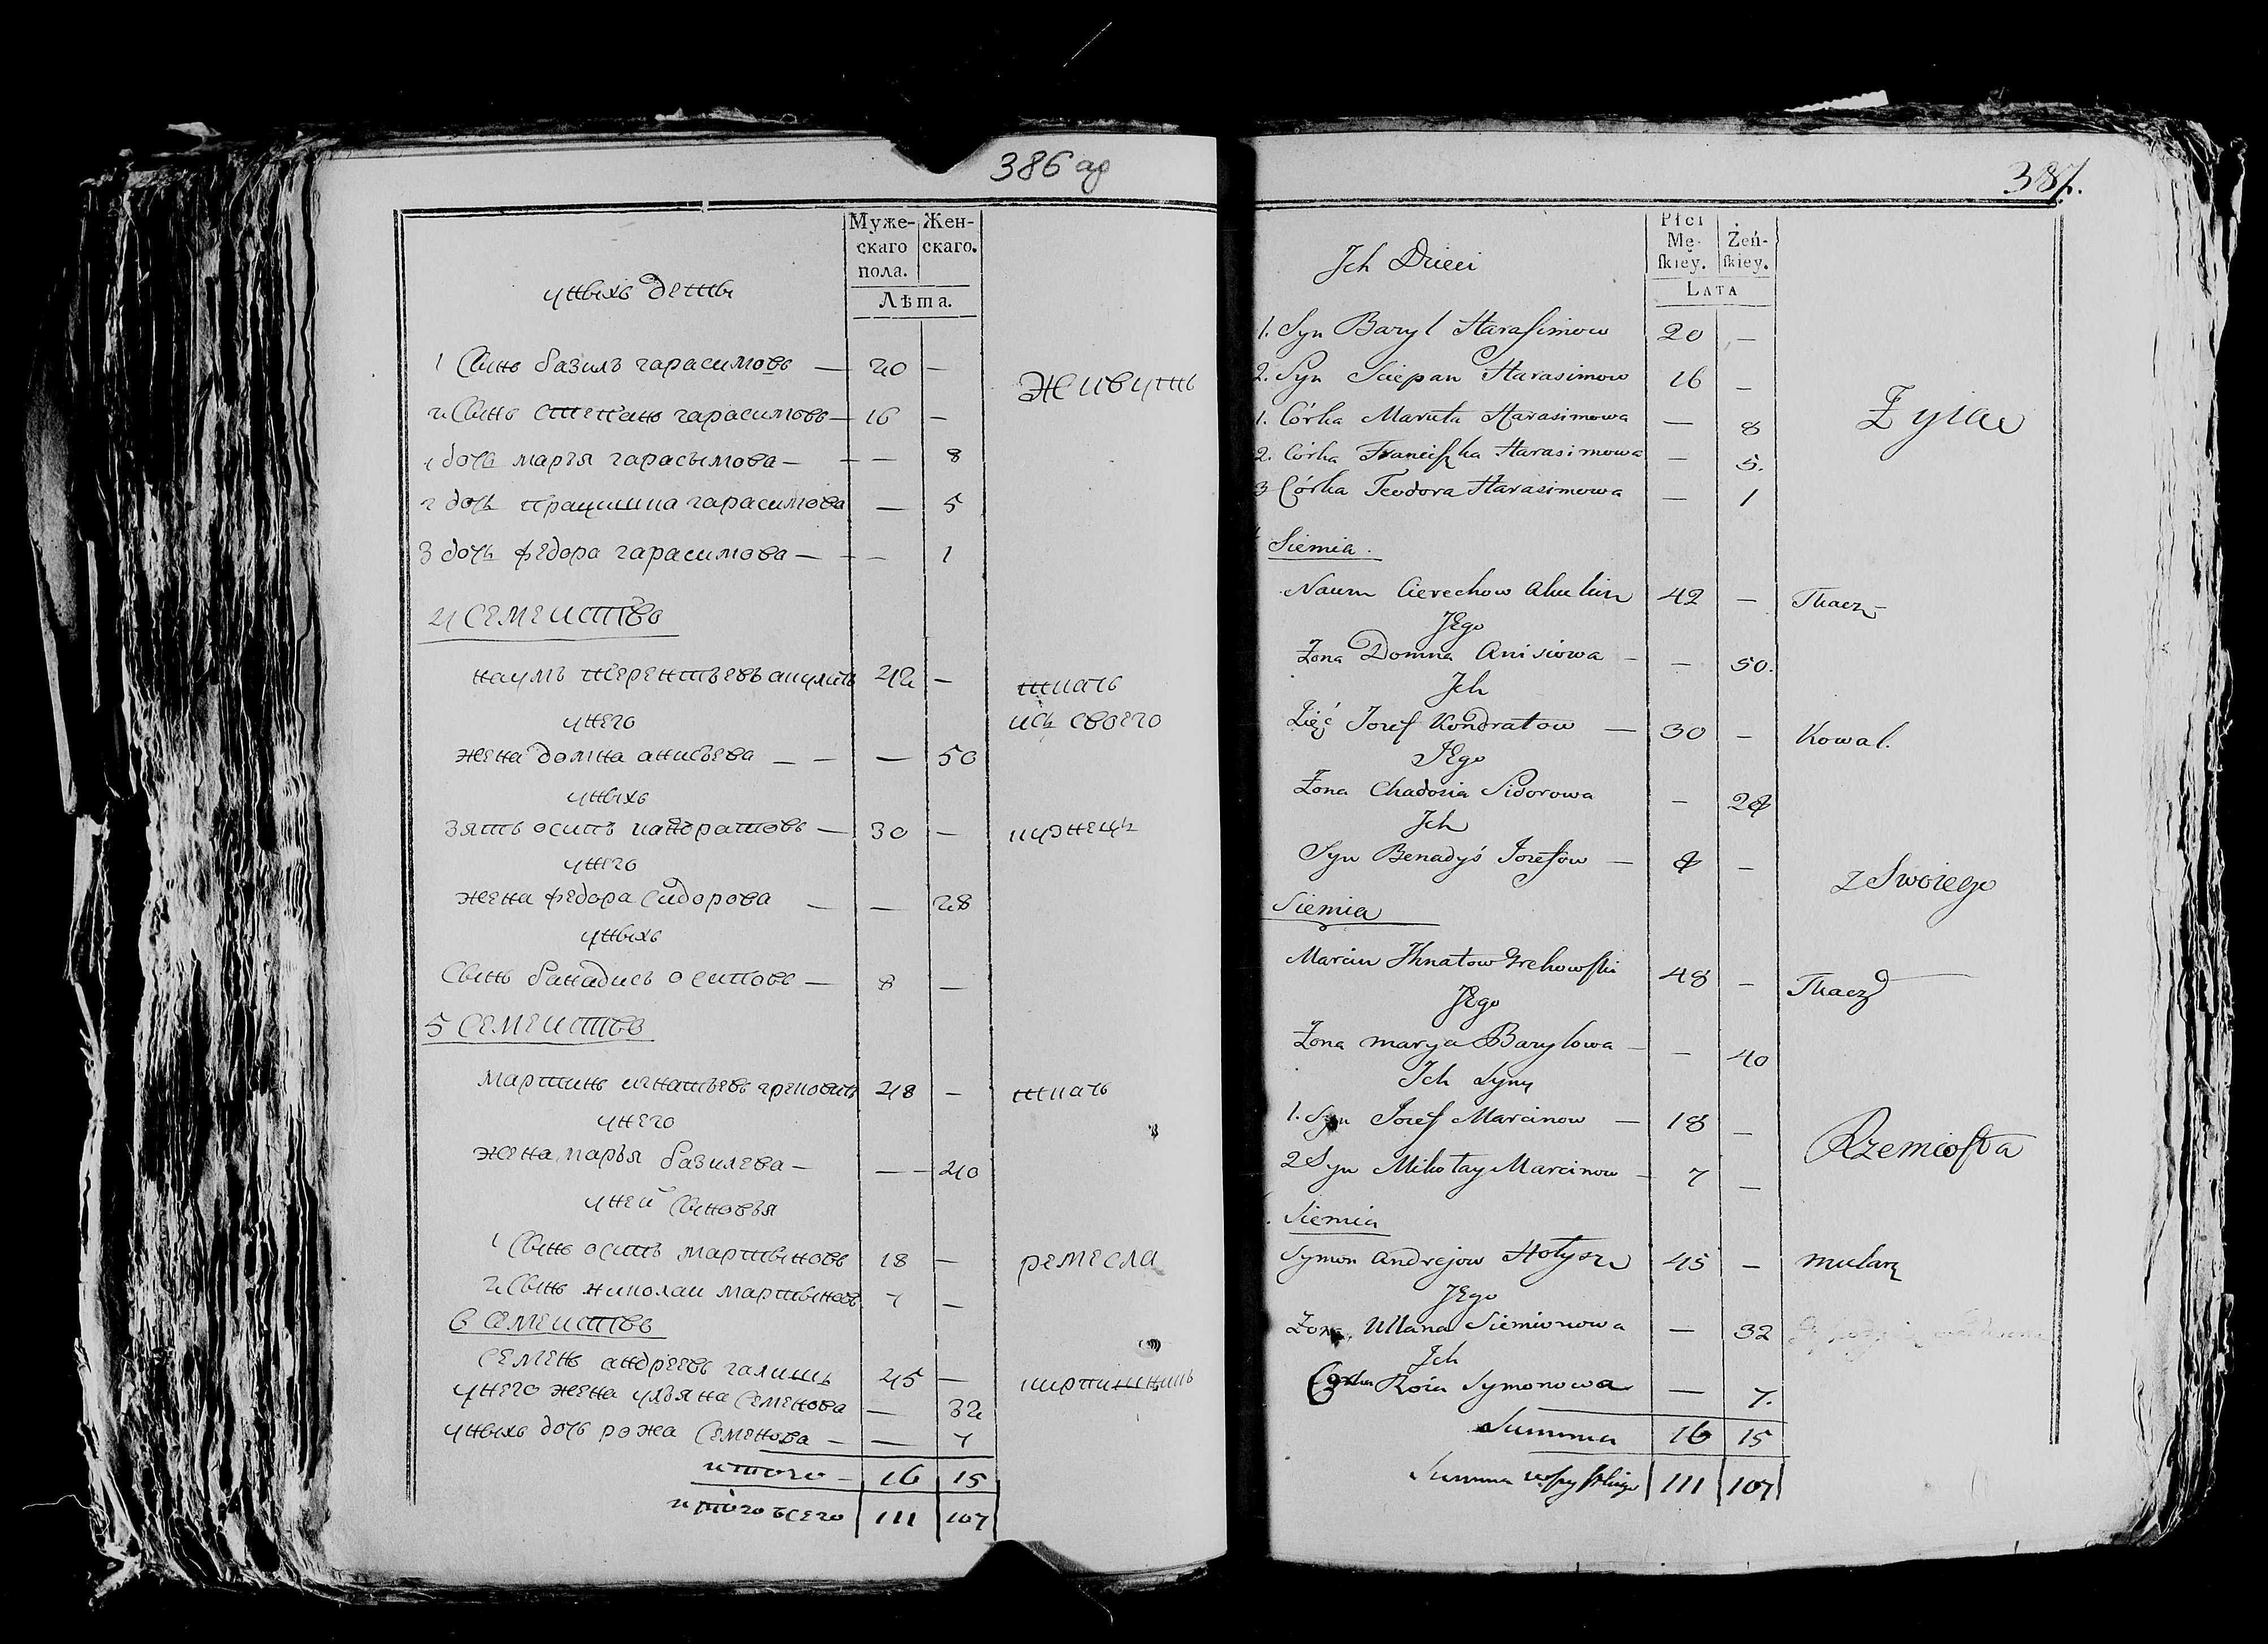 386 ад
Муже- Жен-
скаго скаго.
пола.
Лѣта.
унихъ дети
1 Сынъ базилъ гарасимовъ — 20 —
Живутъ
2 Сынъ степанъ гарасимовъ — 16 —
1 дочь марья гарасымова — — 8
2 дочь гарасимова — 5
3 дочь федора гарасимова — — 1
4 семеиство
наумъ терентьевъ 42 — ткачь
унего
изъ своего
жена домна анисьева — — — 50
уныхъ
зять осипъ кандратовъ — 30 — кузнецъ
унего
жена федора Сидорова — — 28
уныхъ
Сынъ банадись осиповъ — 8 —
5 Семеиство
мартинъ игнатьевъ 48 — ткачь
унего
жена марья базилева — — 40
уней Сыновья
1 Сынъ осипъ мартыновъ 18 — ремесла
2 Сынъ николаи мартыновъ 7 —
6 Семеиство
Семенъ андреевъ галишъ 45 —
унего жена ульяна Семенова — 32
уныхъ дочь рожа Семенова — — 7
итого — 16 15
итого всего 111 107
387.
Płci
Mę- Żeń-
skiey. skiey.
Lata
Jch Dzieci
1. Syn Bazyl Harasimow 20 —
2. Syn Sciepan Harasimow 16 —
1. Córka Maruta Harasimowa — 8
Żyiaą
2. Córka Franciszka Harasimowa — 5.
3 Córka Teodora Harasimowa — 1
Siemia.
Naum Cierechow 42 — Tkacz
Jego
Żona Domna Anisiowa — — 50.
Jch
Zięć Jozef Kondratow — 30 — Kowal.
Jego
Żona Chadosia Sidorowa — 28
Jch
Syn Benadyś Jozefow — 8 —
z Swoiego
Siemia
Marcin Jhnatow Grekowski 48 — Tkacz
Jego
Żona marya Bazylowa — — 40
Jch Syny
1. Syn Jozef Marcinow — 18 —
Rzemiosła
2 Syn Mikołay Marcinow — 7 —
Siemia
Symon Andrejow Hołysz 45 — mularz
Jego
Żona Ullana Siemionowa — 32
Jch
Corka Roża Symonowa — 7.
Summa 16 15
Summa wszystkiego 111 107